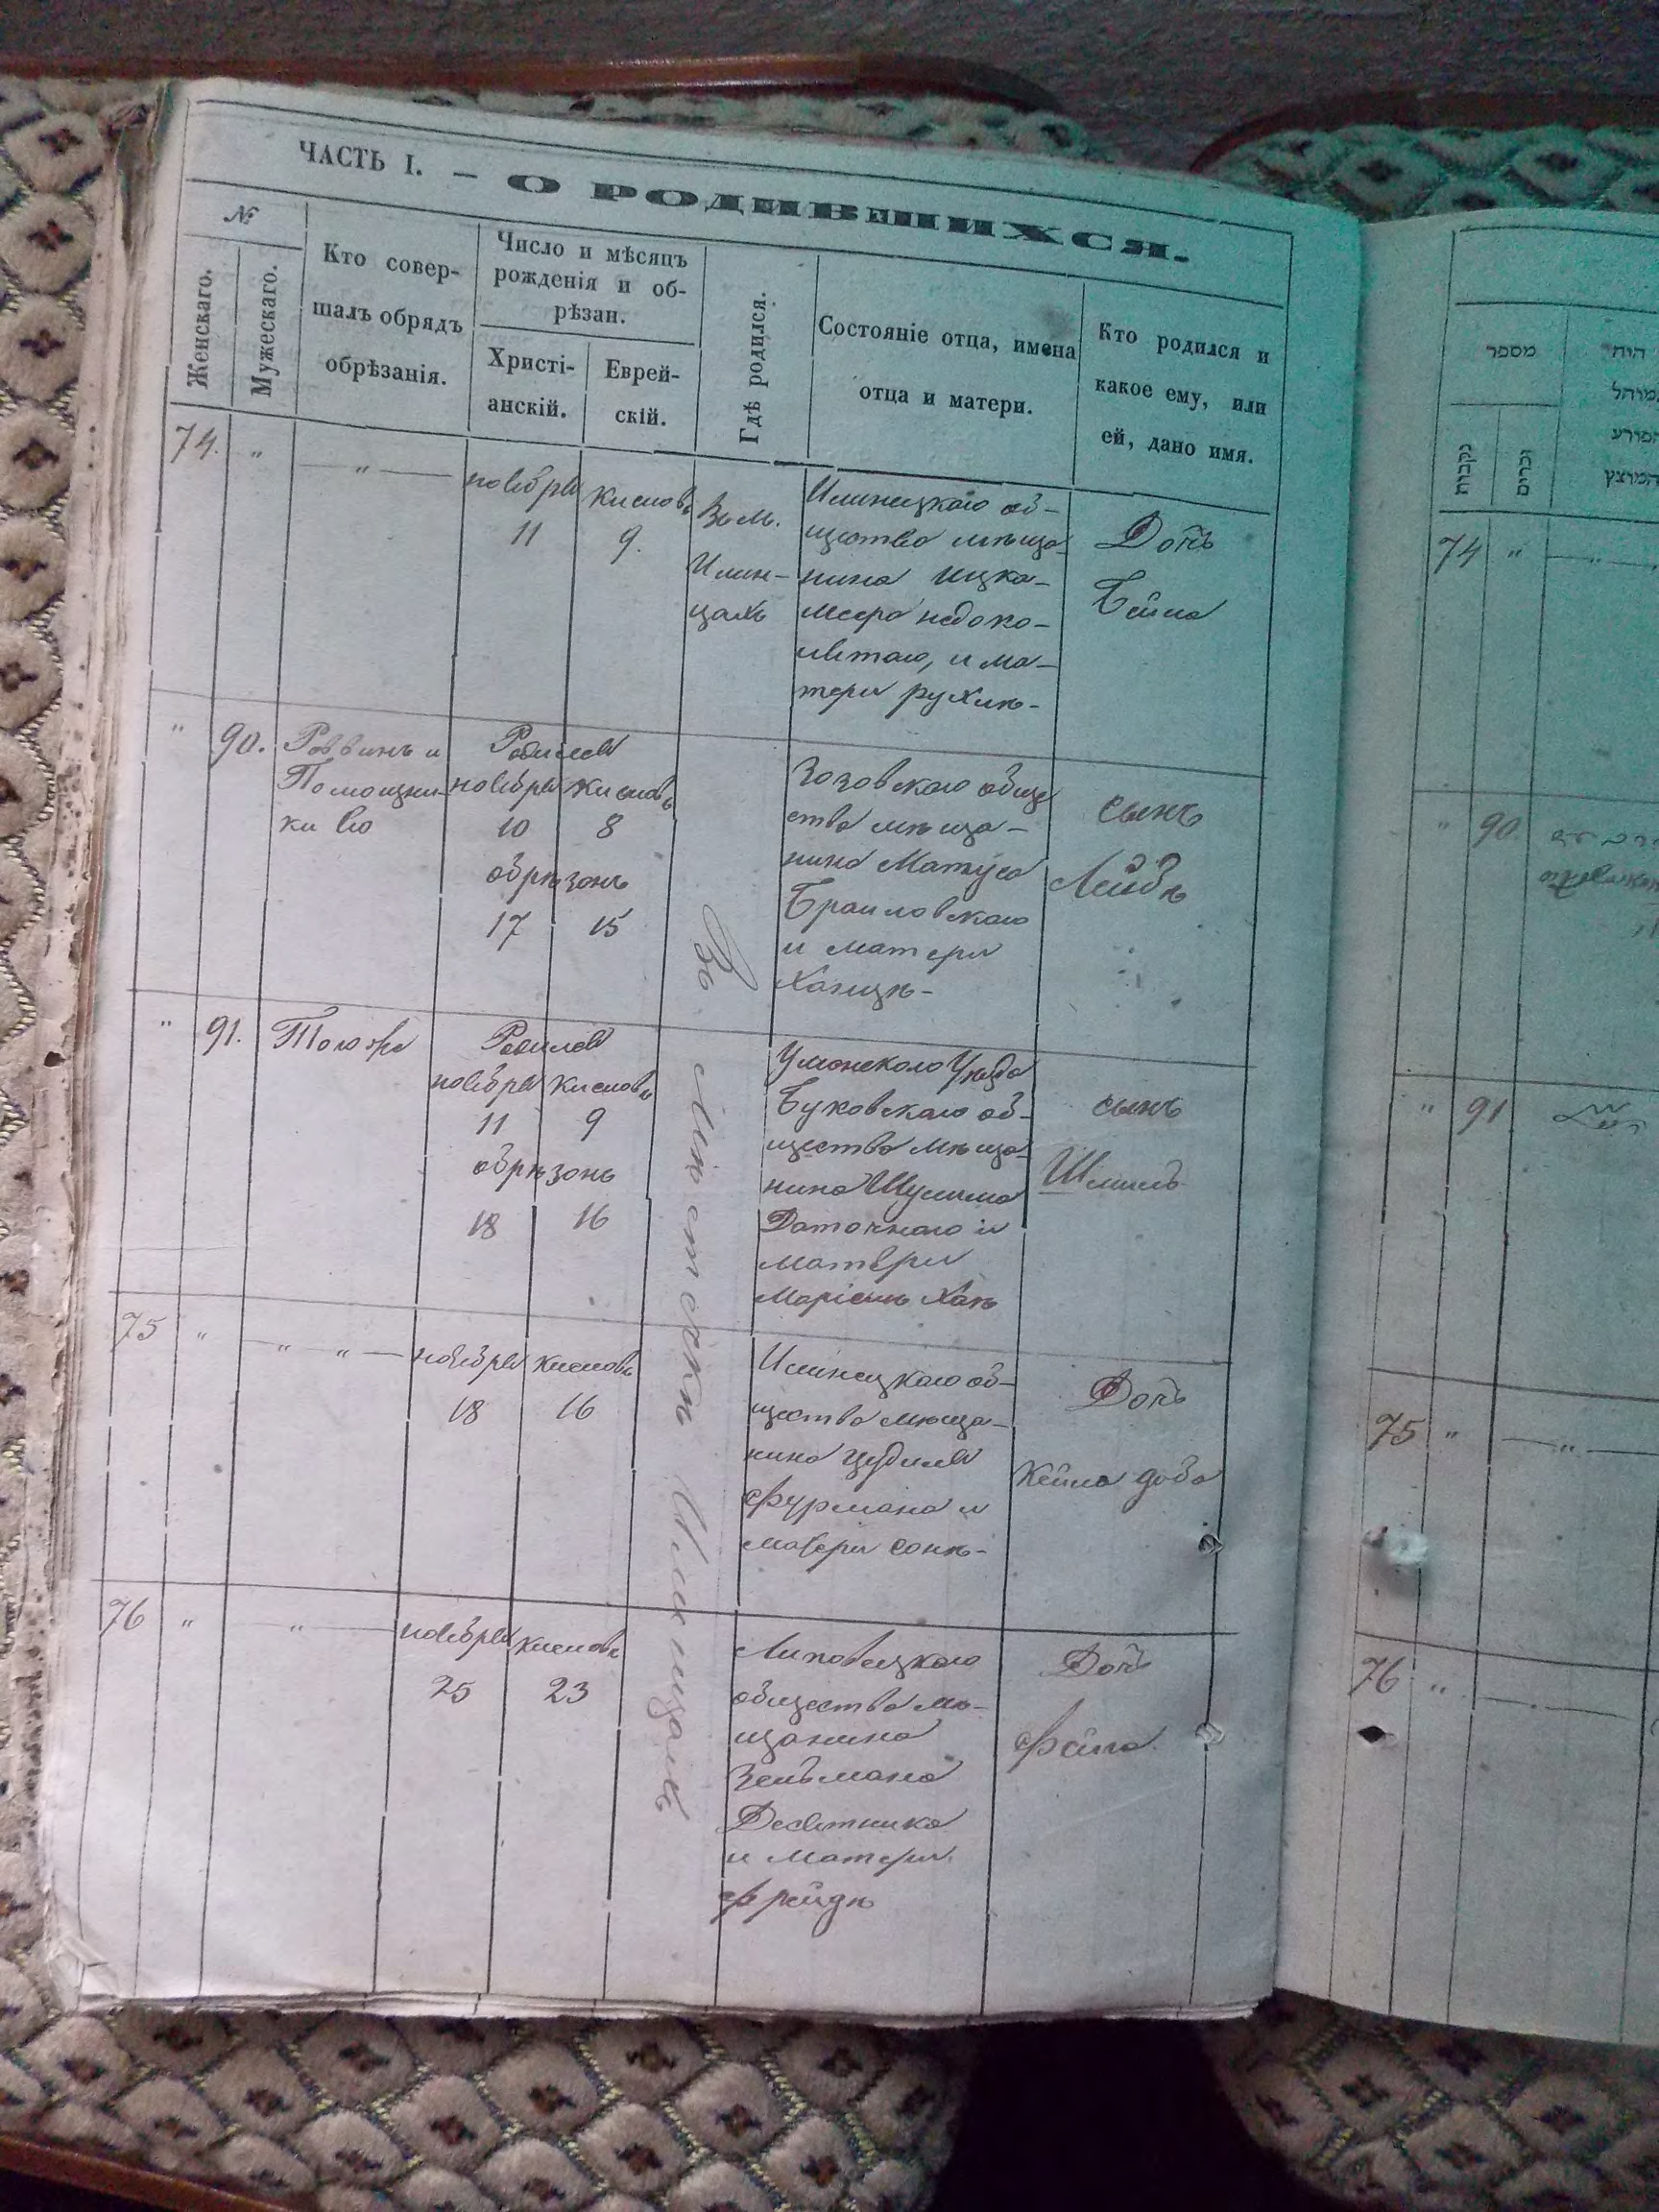 ЧАСТЬ I. – О РОДИВШИХСЯ.
№
Женскаго.
Мужескаго.
Кто совер-
шалъ обрядъ
обрѣзанія.
Число и мѣсяцъ
рожденія и об-
рѣзан.
Христі-
анскій.
Еврей-
скій.
Гдѣ родился.
Состояніе отца, имена
отца и матери.
Кто родился и
какое ему, или
ей, дано имя.
74. " — " —
ноября
11
кислевъ
9.
Въ м.
Илин-
цахъ
Илинецкаго об-
щества мѣща-
нина Ицка-
меера
и ма-
тери рухли-
Дочь
Бейла
" 90.
Раввинъ и
Помощни-
ки его
Родился
ноября кислевъ
10 8
обрѣзанъ
17 15
Зозовскаго обще
ства мѣща-
нина Матуса
Браиловскаго
и матери
Ханцѣ-
сынъ
Лейбъ
" 91.
Тогоже
Родился
ноября кислевъ
11 9
обрѣзанъ
18 16
Уманскаго Уѣзда
Буковскаго об-
щества мѣща-
нина Шулима
Даточнаго и
матери
Маріемъ Хаѣ
сынъ
Шмилъ
75 " — " " —
ноября кислевъ
18 16
Илинецкаго об-
щества мѣща-
нина
Фурмана и
матери Сонѣ-
Дочь
Кейла доба
76 " " —
ноября кислевъ
25 23
Липовецкаго
общества мѣ-
щанина
Зельмана
Десятника
и матери
Фрейдѣ
Дочь
Фейга
Въ мѣстечкѣ Илинцахъ
מספר
נקבות
זכרים
הוה
המוהל
הפורע
המוצץ
74 " — " —
" 90.
" 91
75 " — " —
76 "